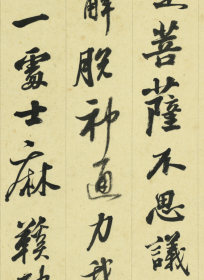 菩薩不思議
解脫神通力我
一處士麻鞵